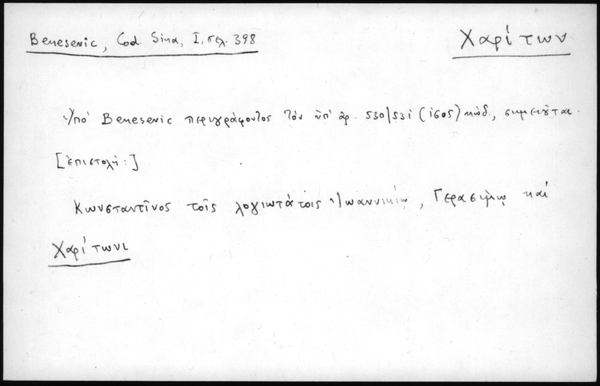 Benesevic, Cod. Sina, I, σελ. 398
Χαρίτων
Ὑπό Benesevic περιγράφοντος τόν ὑπ' ἀρ. 530/531 (1605) κώδ., σημειοῦται.
[ἐπιστολή:]
Κωνσταντῖνος τοῖς λογιωτάτοις Ἰωαννικίῳ, Γερασίμῳ καί
Χαρίτωνι